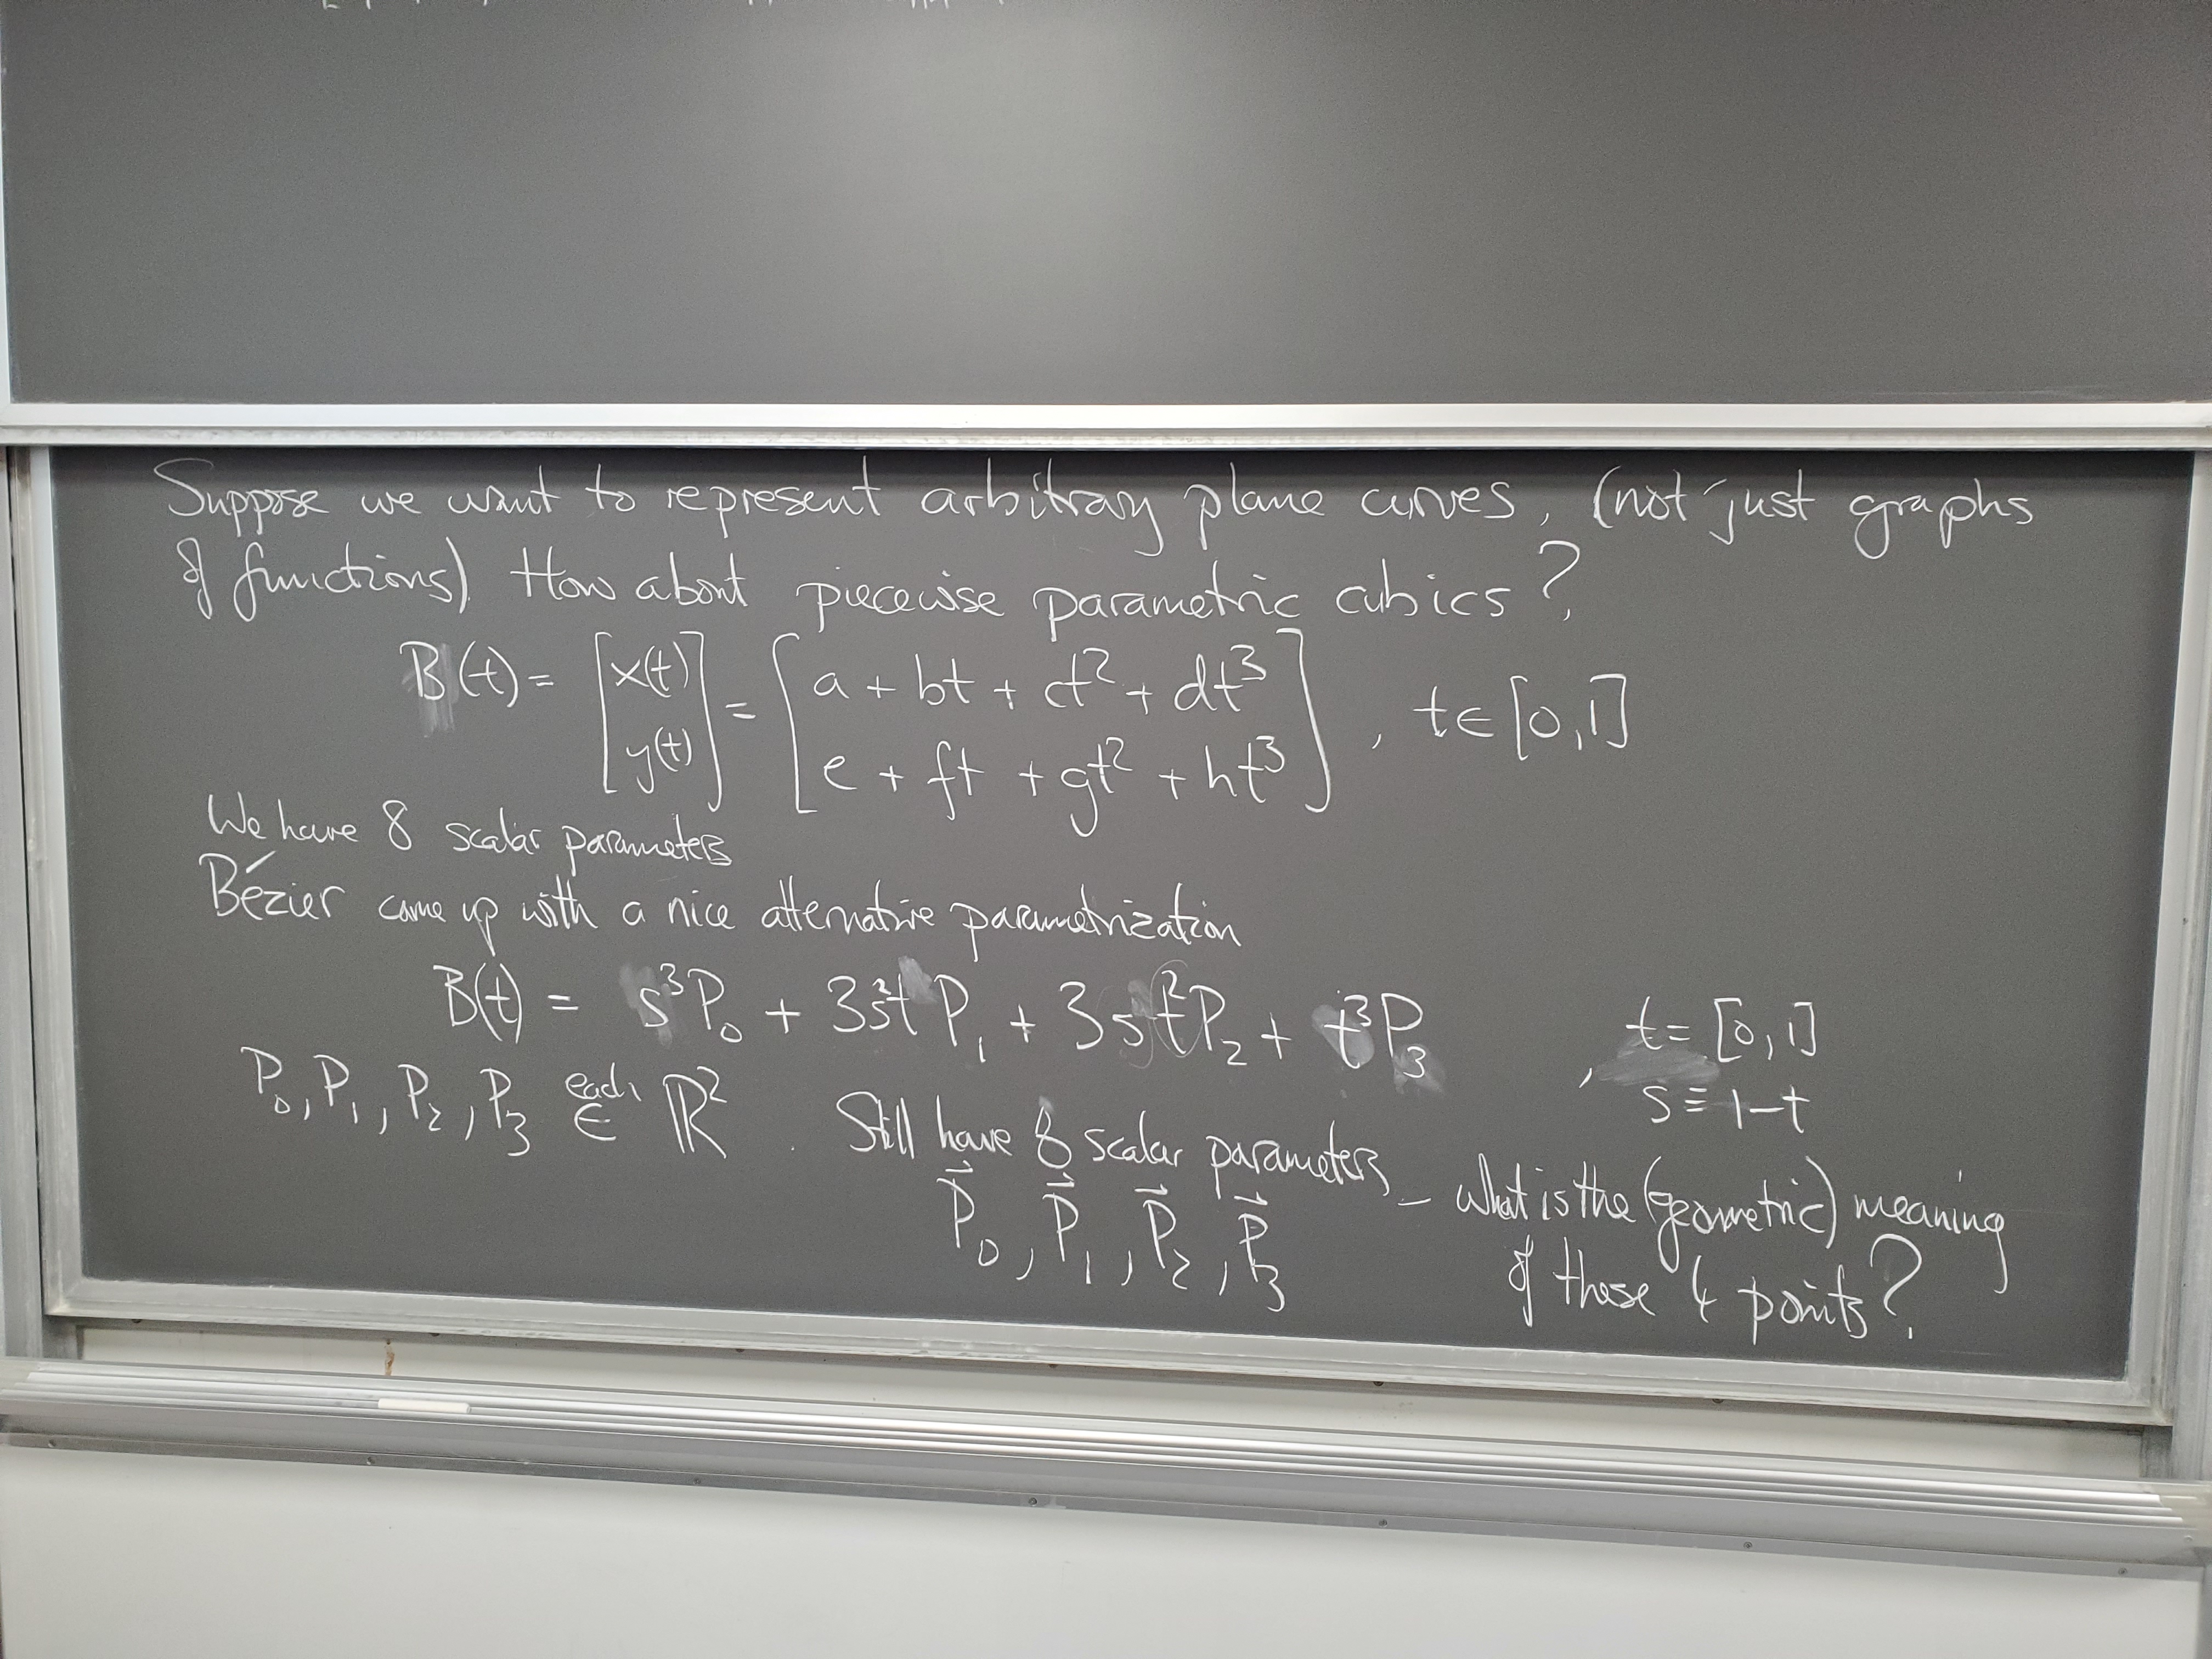 Suppose we want to represent arbitrary plane curves, (not just graphs
of functions). How about piecewise parametric cubics?
B(t) = [x(t) y(t)] = [a + bt + ct² + dt³ e + ft + gt² + ht³], t∈[0,1]
We have 8 scalar parameters
Bézier came up with a nice alternative parametrization
B(t) = s³P₀ + 3s²tP₁ + 3st²P₂ + t³P₃ , t=[0,1]
s≡1-t
P₀, P₁, P₂, P₃ each ∈ ℝ². Still have 8 scalar parameters – what is the (geometric) meaning
P⃗₀, P⃗₁, P⃗₂, P⃗₃ of those 4 points?